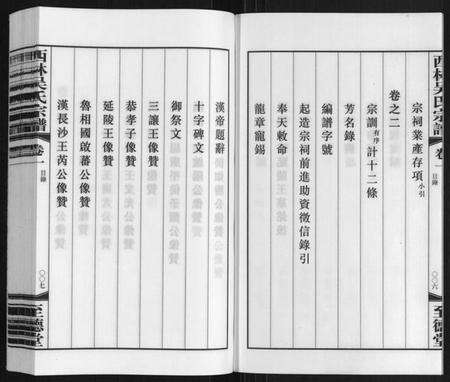 西林吳氏宗譜
卷一
目錄
〇〇六
至德堂
宗祠業產存項小引
卷之二
宗訓有序計十二條
芳名錄
編譜字號
起造宗祠前進助資徵信錄引
奉天敕命
龍章寵錫
漢帝題辭
十字碑文
御祭文
三讓王像贊
恭孝子像贊
延陵王像贊
魯相國啟蕃公像贊
漢長沙王芮公像贊
西林吳氏宗譜
卷一
目錄
〇〇七
至德堂